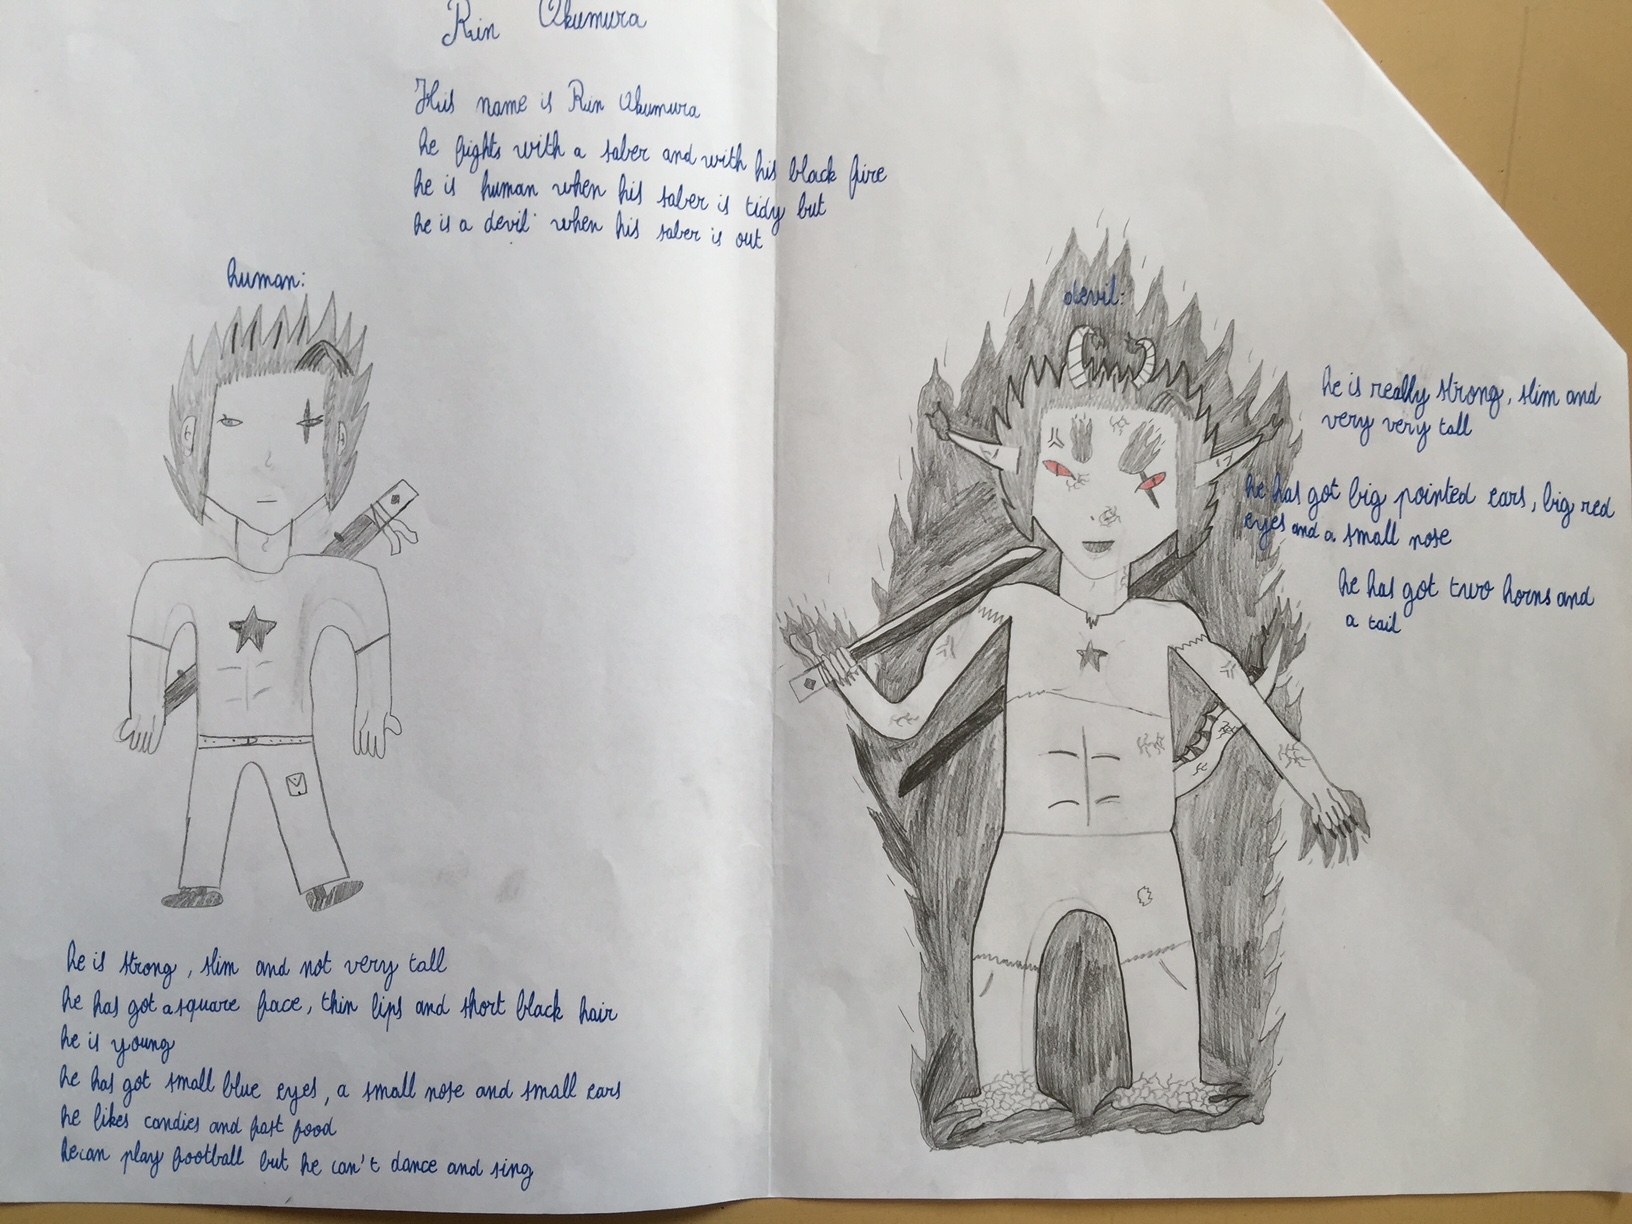 Rin Okumura
His name is Rin Okumura
he fights with a saber and with his black fire
he is human when his saber is tidy but
he is a devil when his saber is out
human:
he is strong, slim and not very tall
he has got a square face, thin lips and short black hair
he is young
he has got small blue eyes, a small nose and small ears
he likes candies and fast food
he can play football but he can't dance and sing
devil:
he is really strong, slim and
very very tall
he has got big pointed ears, big red
eyes and a small nose
he has got two horns and
a tail